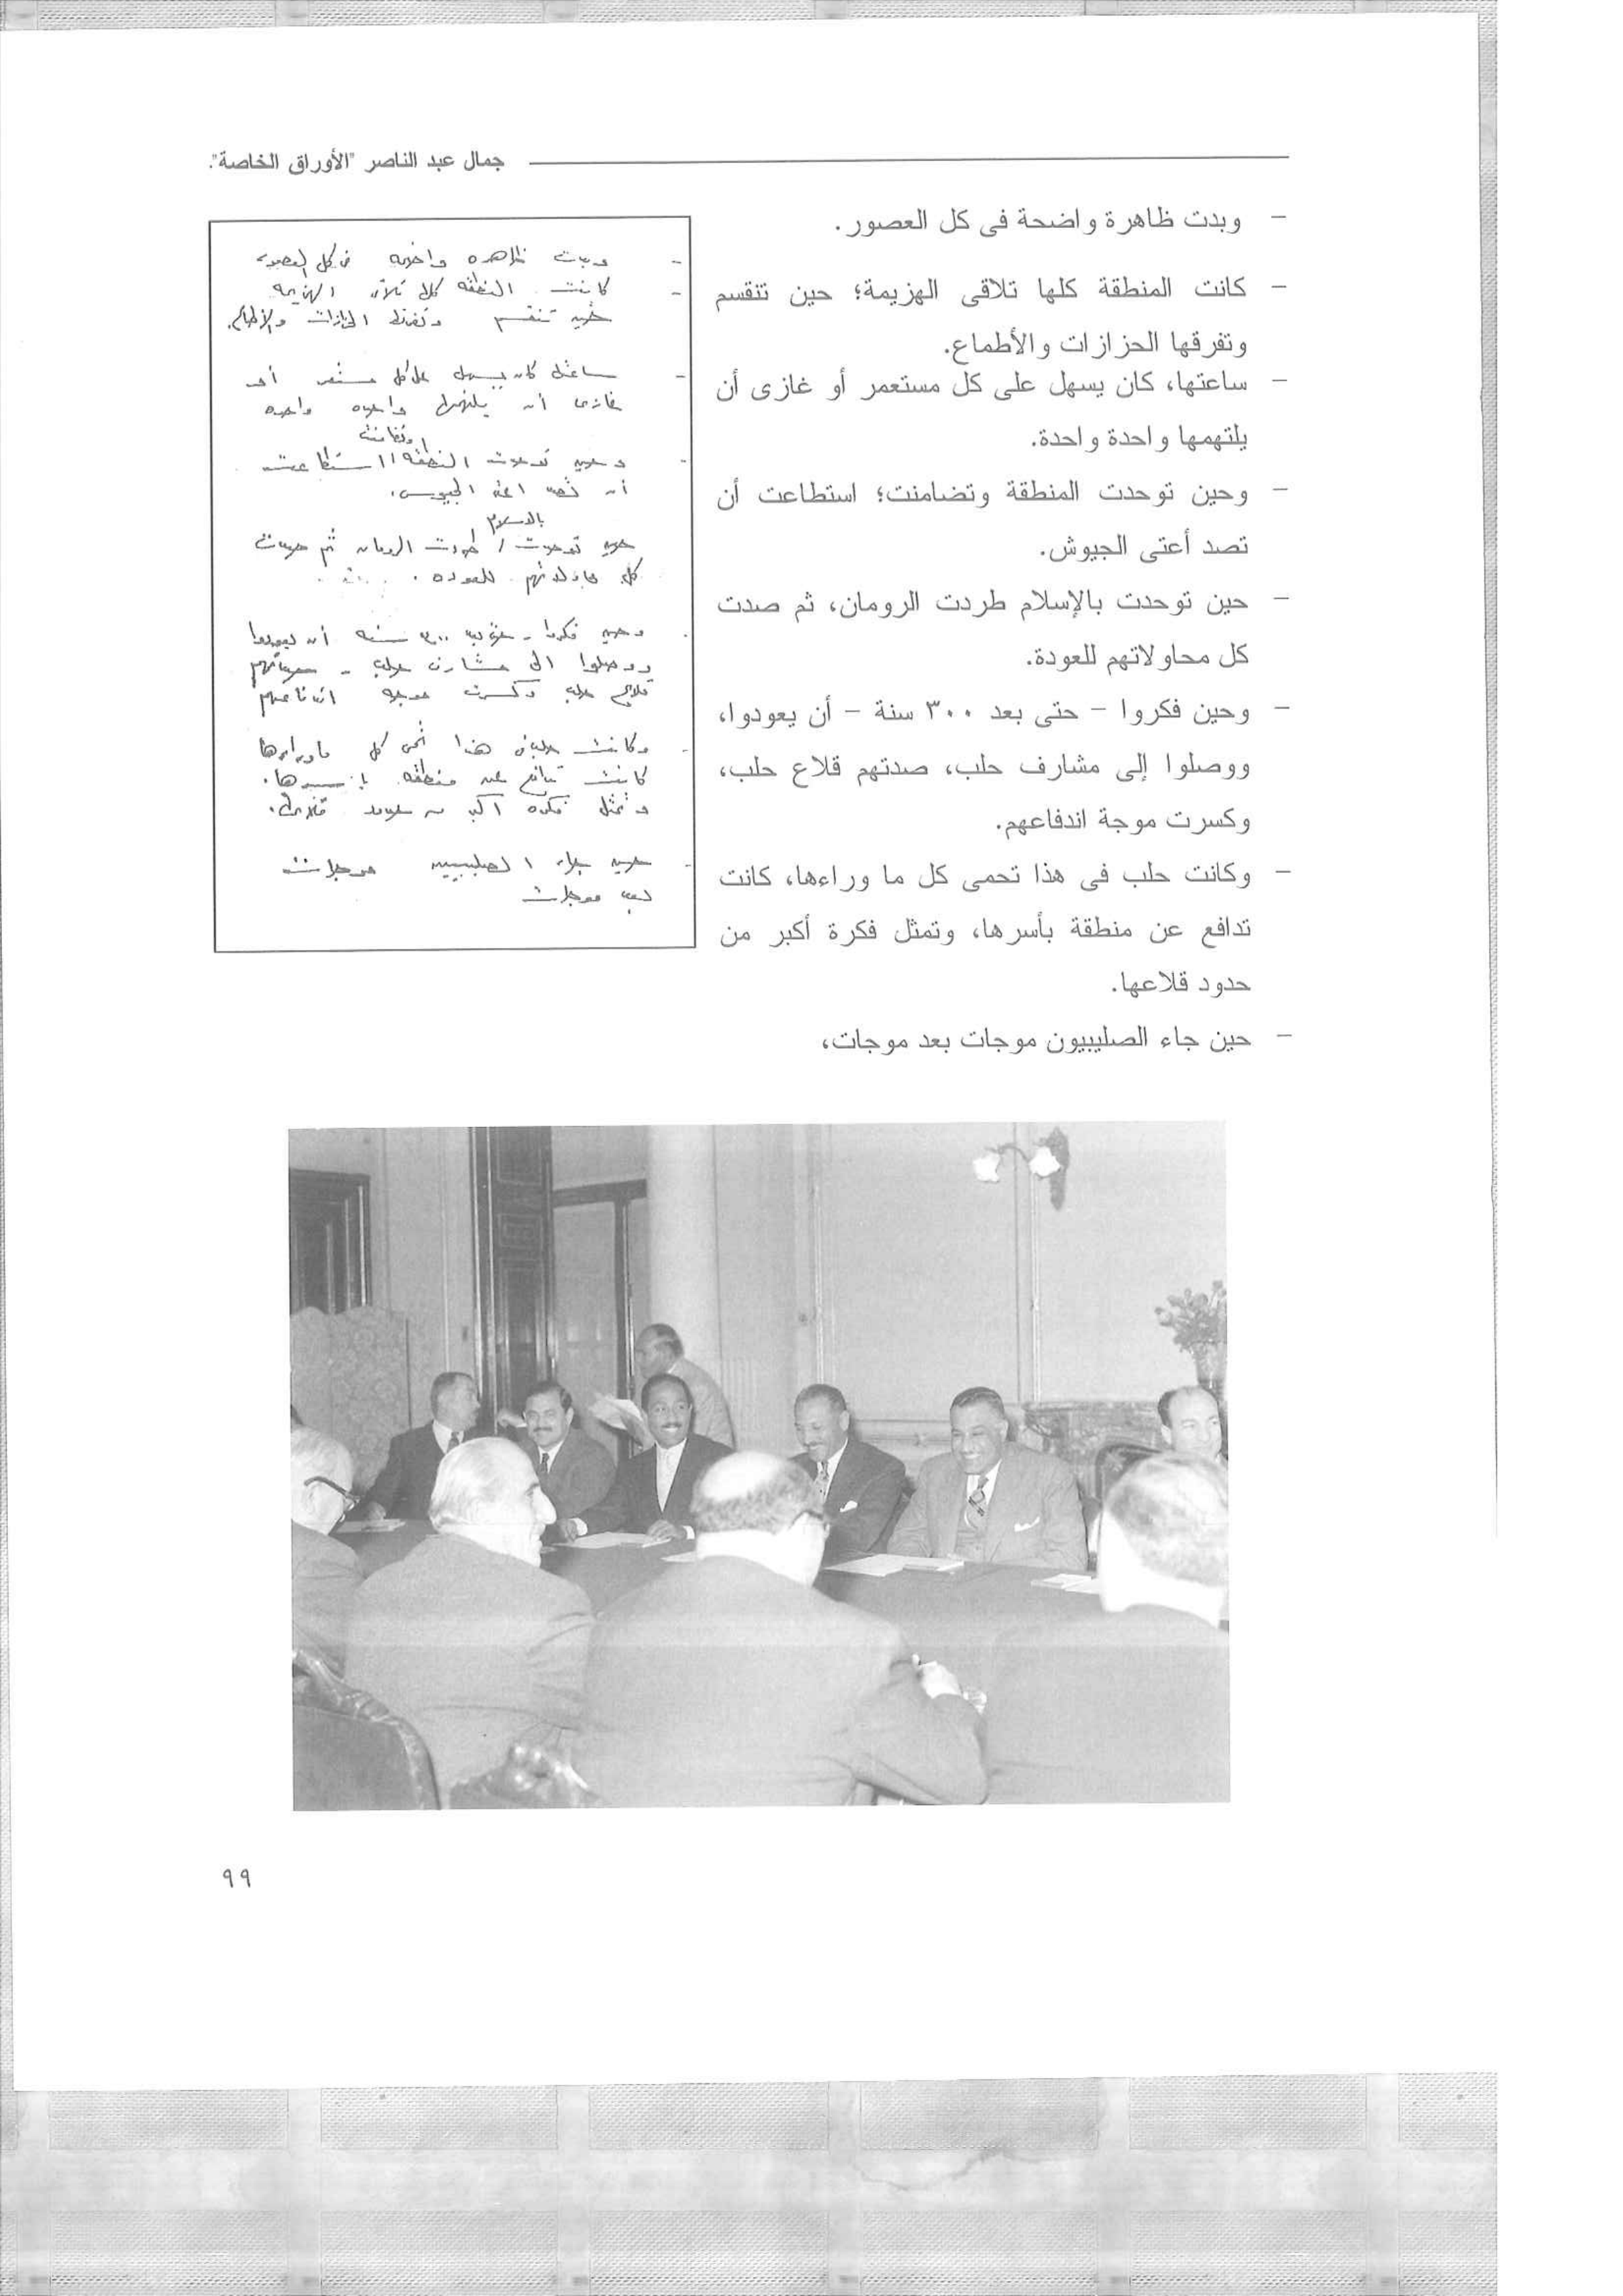 جمال عبد الناصر "الأوراق الخاصة".
– وبدت ظاهرة واضحة فى كل العصور.
– كانت المنطقة كلها تلاقى الهزيمة؛ حين تنقسم
وتفرقها الحزازات والأطماع.
– ساعتها، كان يسهل على كل مستعمر أو غازى أن
يلتهمها واحدة واحدة.
– وحين توحدت المنطقة وتضامنت؛ استطاعت أن
تصد أعتى الجيوش.
– حين توحدت بالإسلام طردت الرومان، ثم صدت
كل محاولاتهم للعودة.
– وحين فكروا – حتى بعد ٣٠٠ سنة – أن يعودوا،
ووصلوا إلى مشارف حلب، صدتهم قلاع حلب،
وكسرت موجة اندفاعهم.
– وكانت حلب فى هذا تحمى كل ما وراءها، كانت
تدافع عن منطقة بأسرها، وتمثل فكرة أكبر من
حدود قلاعها.
– حين جاء الصليبيون موجات بعد موجات،
- وبدت ظاهره واضحه فى كل العصور
- كانت المنطقه كلها تلاقى الهزيمه
حين تنقسم وتفرقها الحزازات والأطماع.
- ساعتها كان يسهل على كل مستعمر أو
غازى أن يلتهمها واحده واحده
وتضامنت
- وحين توحدت المنطقه / استطاعت
أن تصد اعتى الجيوش.
بالاسلام
حين توحدت / طردت الرومان ثم صدت
كل محاولاتهم للعوده.
- وحين فكروا - حتى بعد ٣٠٠ سنه أن يعودوا
ووصلوا الى مشارف حلب - صدتهم
قلاع حلب وكسرت موجه اندفاعهم
- وكانت حلب فى هذا تحمى كل ما وراءها
كانت تدافع عن منطقه بأسرها.
وتمثل فكره اكبر من حدود قلاعها.
- حين جاء الصليبيين موجات
بعد موجات
٩٩